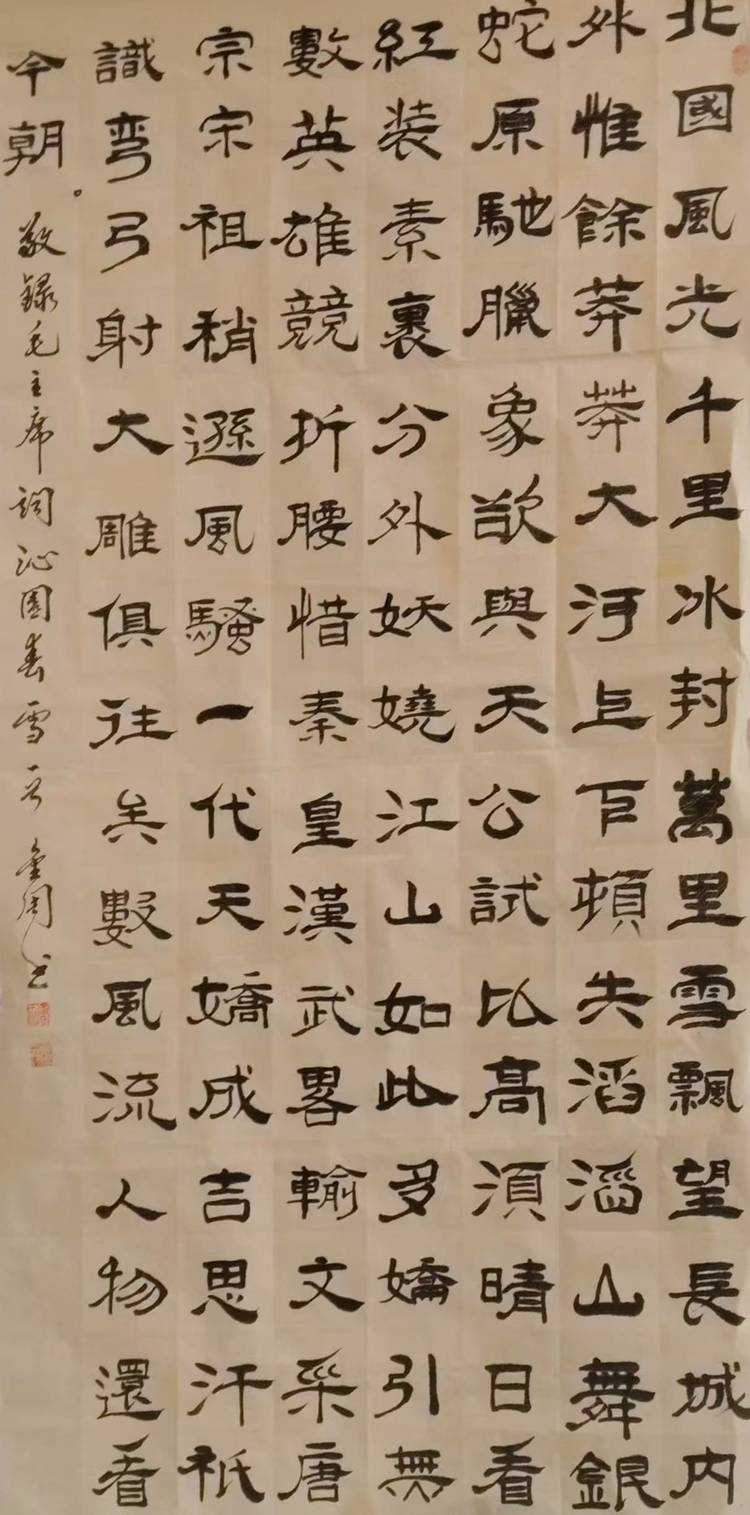 北國風光千里冰封萬里雪飄望長城内
外惟餘莽莽大河上下頓失滔滔山舞銀
蛇原馳臘象欲與天公試比高須晴日看
紅装素裹分外妖嬈江山如此多嬌引無
數英雄競折腰惜秦皇漢武畧輸文采唐
宗宋祖稍遜風騷一代天嬌成吉思汗祇
識彎弓射大雕俱往矣數風流人物還看
今朝。敬録毛主席詞沁園春雪一首 金周书